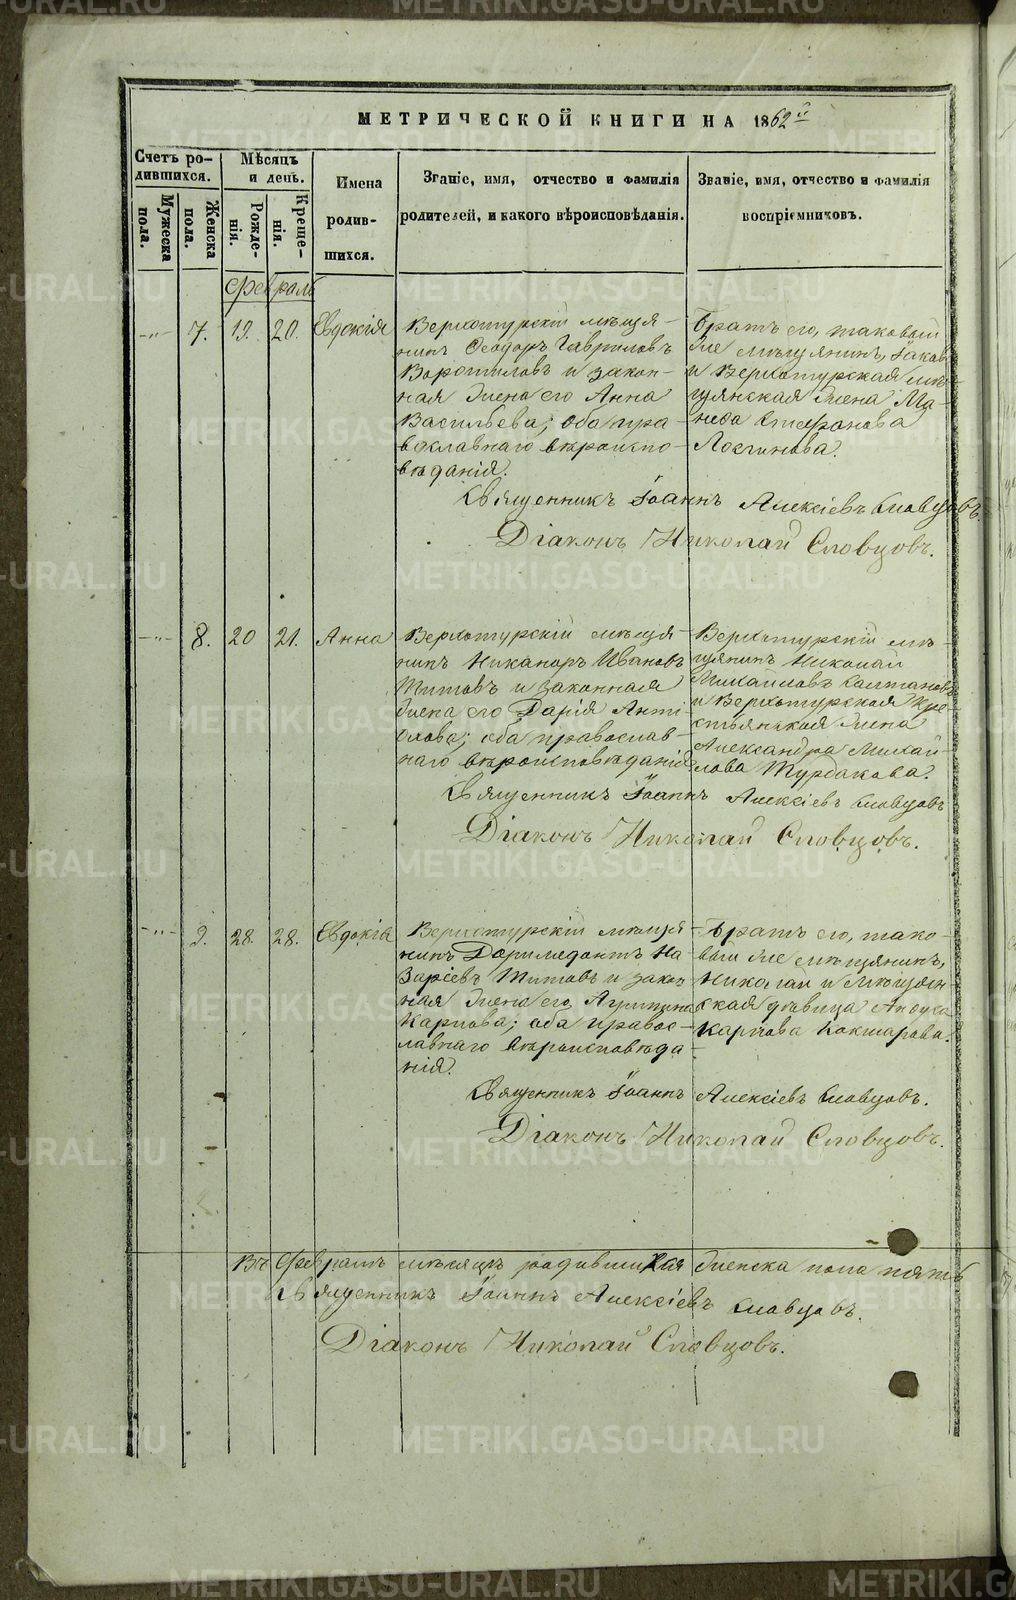 МЕТРИЧЕСКОЙ КНИГИ НА 1862й
Счетъ ро-
дившихся.
Мужеска
пола.
Женска
пола.
Мѣсяцъ
и день.
Рожде-
нія.
Креще-
нія.
Имена
родив-
шихся.
Званіе, имя, отчество и фамилія
родителей, и какого вѣроисповѣданія.
Званіе, имя, отчество и фамилія
воспріемниковъ.
Февраль
-"- 7. 19. 20. Евдокія
Верхотурскій мѣща-
нинъ Ѳеодоръ Гавриловъ
Воротиловъ и закон-
ная жена его Анна
Васильева; оба пра-
вославнаго вѣроиспо-
вѣданія.
Братъ его, таковый
же мѣщанинъ, Іаковъ
и Верхотурская мѣ-
щанская жена Ма-
Стефанова
Логинова.
Священникъ Іоаннъ Алексіевъ Словцовъ.
Діаконъ Николай Словцовъ.
-"- 8. 20 21. Анна
Верхотурскій мѣща-
нинъ Никаноръ Ивановъ
Титовъ и законная
жена его Дарія Анти-
пова; оба православ-
наго вѣроисповѣданія
Верхотурскій мѣ-
щанинъ Николай
Михаиловъ Калтановъ
и Верхотурская кре-
стьянская жена
Александра Михаи-
лова Турбакова.
Священникъ Іоаннъ Алексіевъ Словцовъ
Діаконъ Николай Словцовъ.
-"- 9. 28. 28. Евдокія
Верхотурскій мѣща-
нинъ Доримедонтъ На-
заріевъ Титовъ и закон-
ная жена его
Карпова; оба правос-
лавнаго вѣроисповѣда-
нія.
Братъ его, тако-
вый же мѣщанинъ,
Николай и мѣщан-
ская дѣвица
Карпова Кокшарова.
Священникъ Іоаннъ Алексіевъ Словцовъ.
Діаконъ Николай Словцовъ.
Въ Февралѣ мѣсяцѣ родившихся женска пола пять
Священникъ Іоаннъ Алексіевъ Словцовъ.
Діаконъ Николай Словцовъ.
METRIKI.GASO-URAL.RU